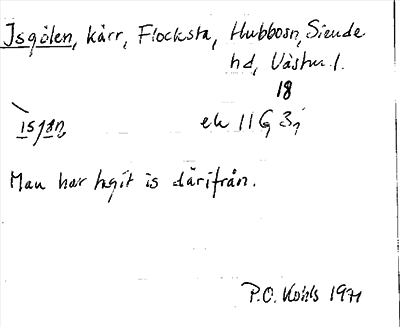 Isgölen, kärr, Flocksta, Hubbosn, Siende
hd, Västm. l.
18
ek 11G 3j
Man har tagit is därifrån.
P.O. Kohls 1971